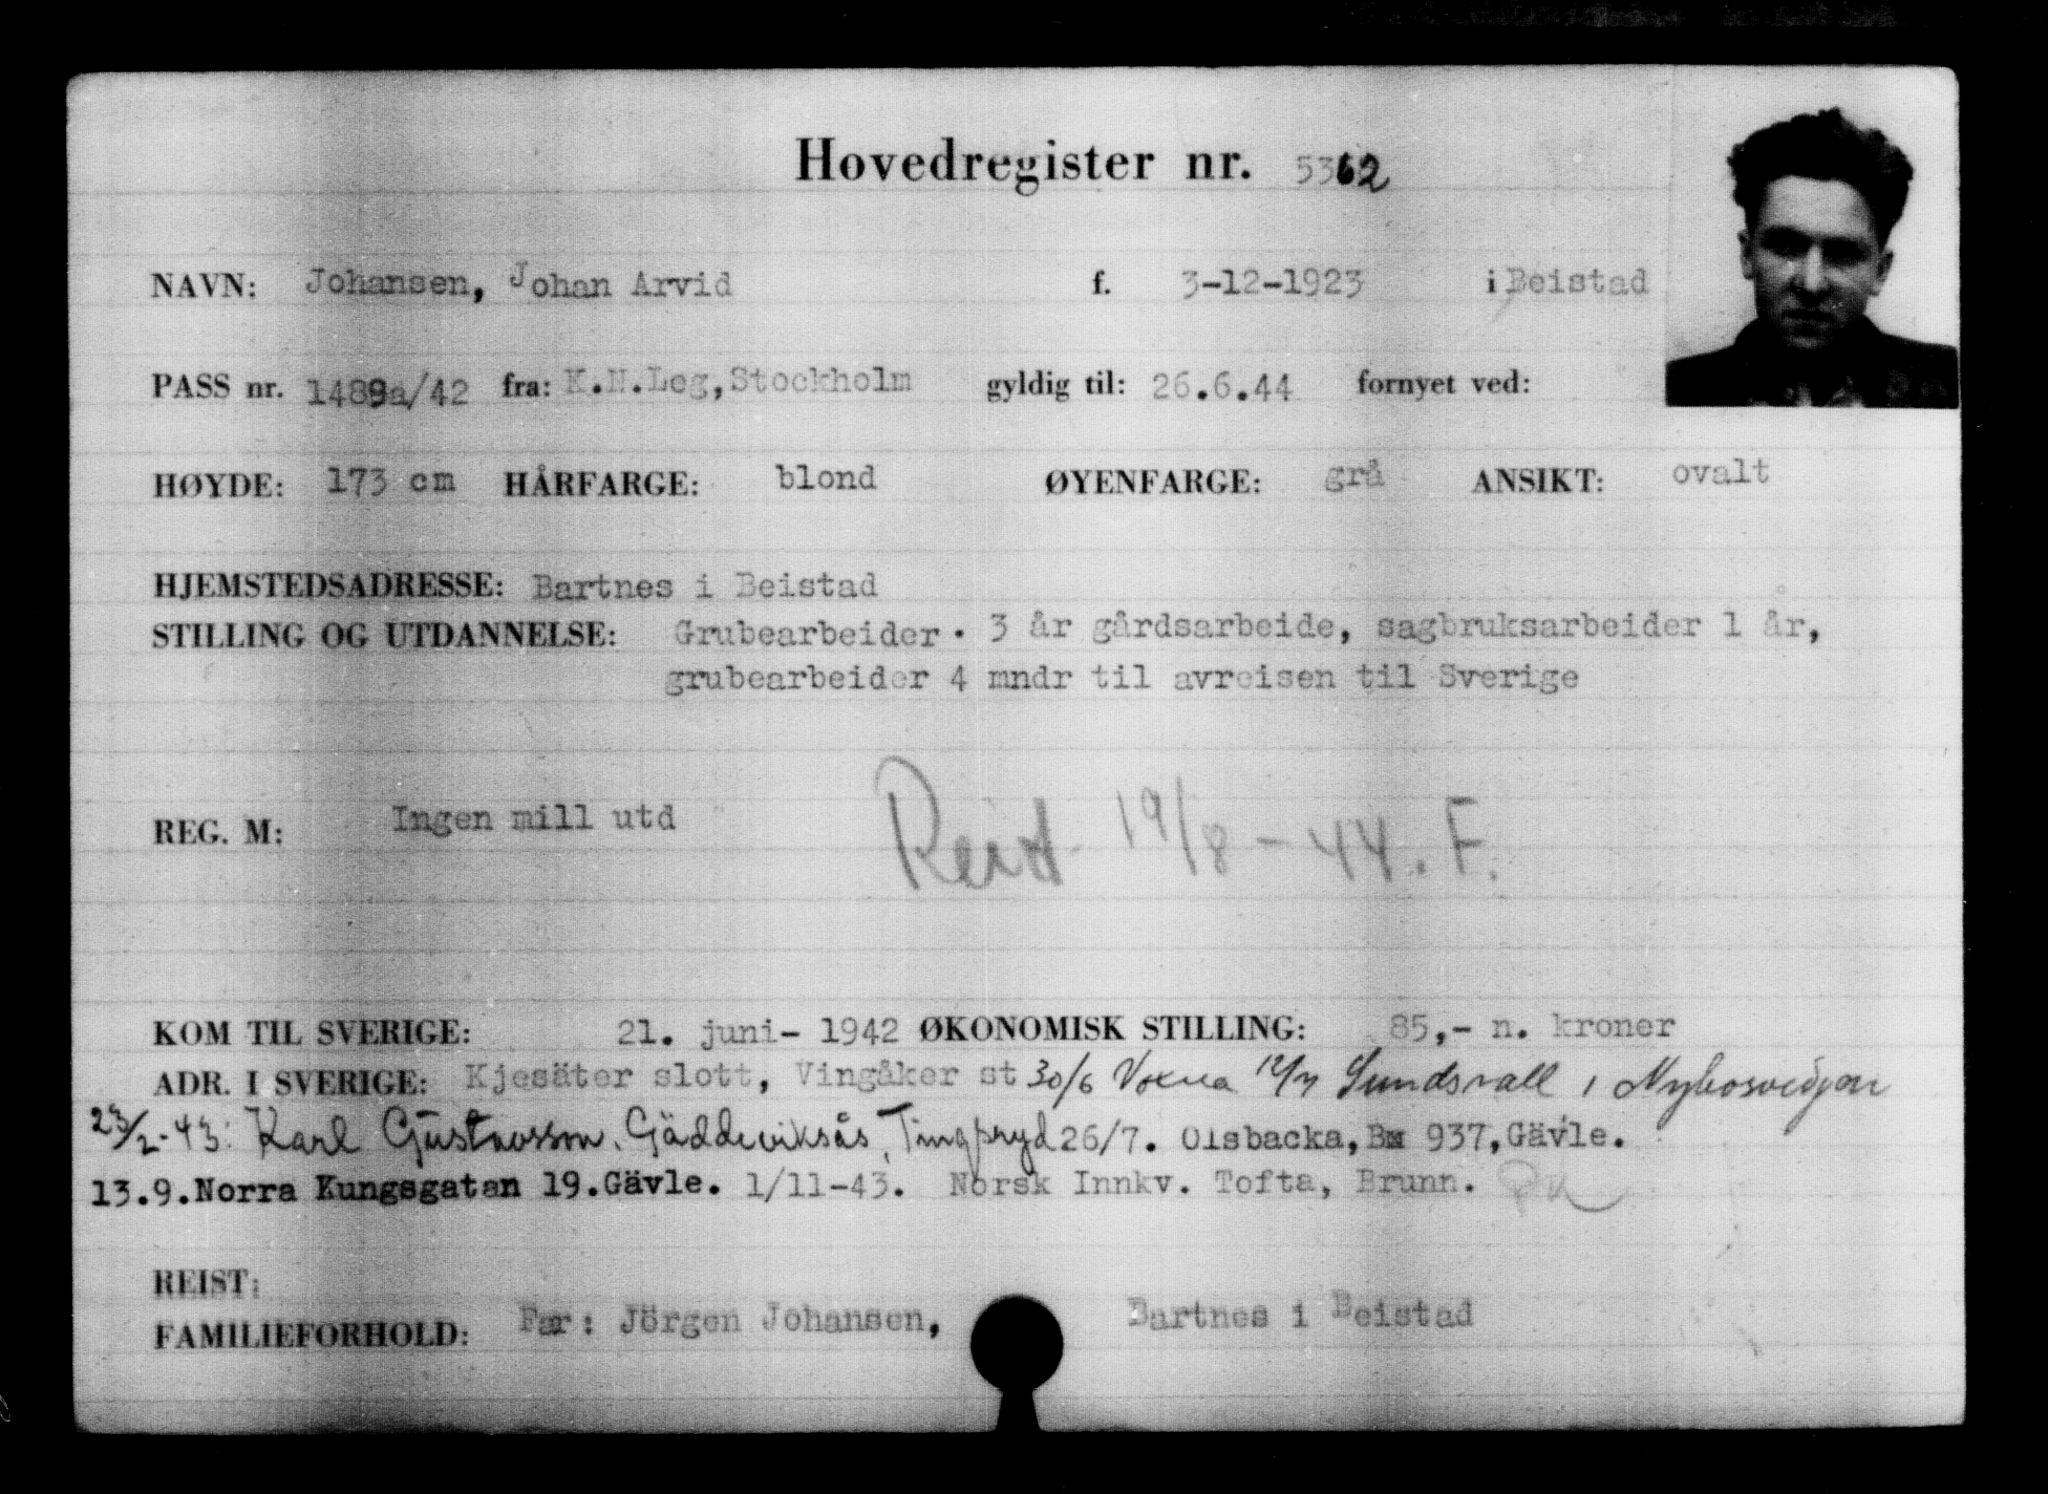 Hovedregister nr. 5362
NAVN: Johansen, Johan Arvid f. 3-12-1923 i Beistad
PASS nr. 1489a/42 fra: K.N.Leg,Stockholm gyldig til: 26.6.44 fornyet ved:
HØYDE: 173 cm HÅRFARGE: blond ØYENFARGE: grå ANSIKT: ovalt
HJEMSTEDSADRESSE: Bartnes i Beistad
STILLING OG UTDANNELSE: Grubearbeider. 3 år gårdsarbeide, sagbruksarbeider 1 år,
grubearbeider 4 mndr til avreisen til Sverige
REG. M: Ingen mill utd
Reist 19/8-44. F.
KOM TIL SVERIGE: 21. juni- 1942 ØKONOMISK STILLING: 85,- n. kroner
ADR. I SVERIGE: Kjesäter slott, Vingåker st 30/6 Voxna 12/7 Sundsvall,
23/2-43: Karl Gustavsson, Gäddeviksås, Tingsryd 26/7. Olsbacka, Bx 937, Gävle.
13.9. Norra Kungsgatan 19. Gävle. 1/11-43. Norsk Innkv. Tofta, Brunn.
REIST:
FAMILIEFORHOLD: Far: Jörgen Johansen, Bartnes i Beistad